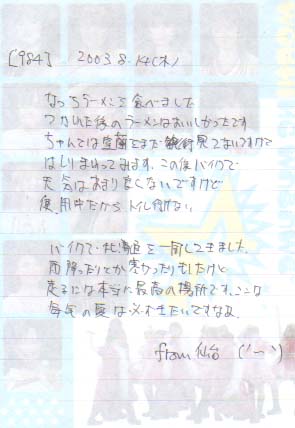 [984] 2003.8.14(木)
なっちラーメンを食べました
つかれた後のラーメンはおいしかったです
ちゃんでは室蘭をまだ観術見てないですけで
はしりまわってみます、この後バイクで
天気はあまり良くないですけど
使用中だから トイレ行けない
バイクで北海道を一周してきました
雨降ったりとか寒かったりもしたけど
走るには本当に最高の場所です、ここは
毎年の夏は必ずきたいですなぁ
from 仙台